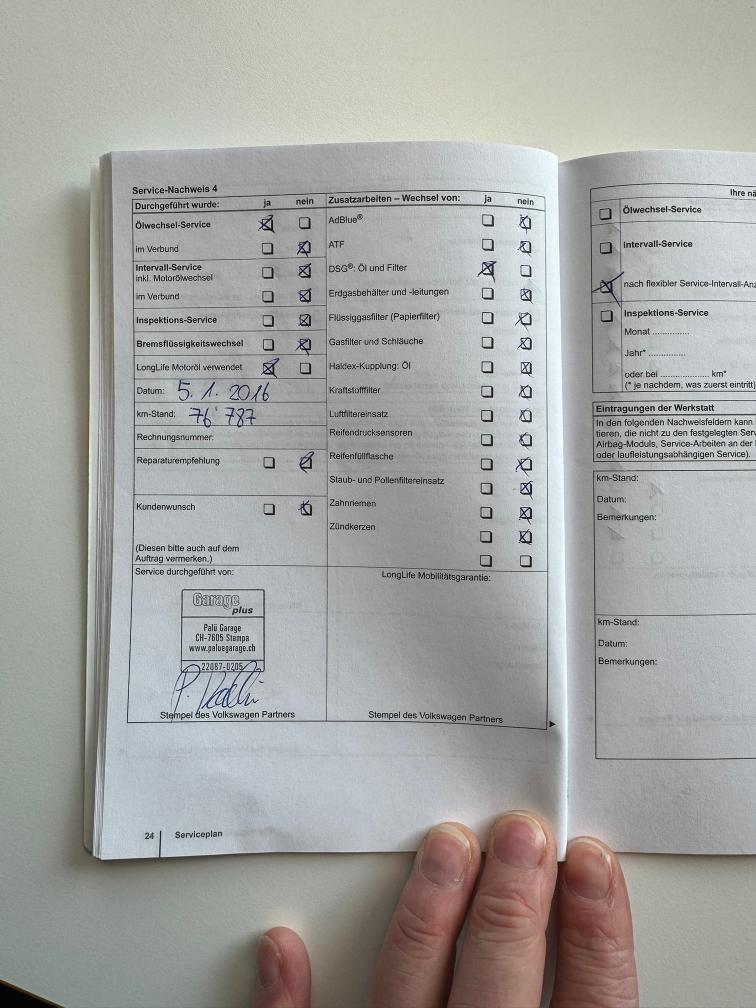 Service-Nachweis 4
Durchgeführt wurde: ja nein
Ölwechsel-Service
im Verbund
Intervall-Service
inkl. Motorölwechsel
im Verbund
Inspektions-Service
Bremsflüssigkeitswechsel
LongLife Motoröl verwendet
Datum: 5. 1. 2016
km-Stand: 76'787
Rechnungsnummer:
Reparaturempfehlung
Kundenwunsch
(Diesen bitte auch auf dem
Auftrag vermerken.)
Zusatzarbeiten – Wechsel von: ja nein
AdBlue®
ATF
DSG®: Öl und Filter
Erdgasbehälter und -leitungen
Flüssiggasfilter (Papierfilter)
Gasfilter und Schläuche
Haldex-Kupplung: Öl
Kraftstofffilter
Luftfiltereinsatz
Reifendrucksensoren
Reifenfüllflasche
Staub- und Pollenfiltereinsatz
Zahnriemen
Zündkerzen
Service durchgeführt von:
Garage
plus
Palü Garage
CH-7605 Stampa
www.paluegarage.ch
22087-0205
Stempel des Volkswagen Partners
LongLife Mobilitätsgarantie:
Stempel des Volkswagen Partners
24 Serviceplan
Ihre
Ölwechsel-Service
Intervall-Service
nach flexibler Service-Intervall-Anz
Inspektions-Service
Monat ...............
Jahr* ...............
oder bei .................... km*
(* je nachdem, was zuerst eintritt)
Eintragungen der Werkstatt
In den folgenden Nachweisfeldern kann
tieren, die nicht zu den festgelegten Serv
Airbag-Moduls, Service-Arbeiten an der
oder laufleistungsabhängigen Service).
km-Stand:
Datum:
Bemerkungen:
km-Stand:
Datum:
Bemerkungen: